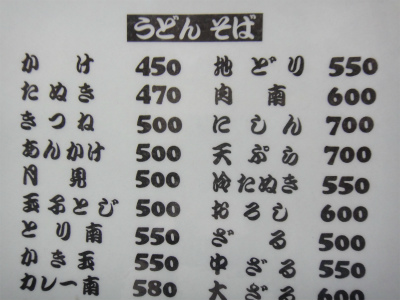 うどん そば
かけ 450
たぬき 470
きつね 500
あんかけ 500
月見 500
玉子とじ 500
とり南 550
かき玉 550
カレー南 580
地どり 550
肉南 600
にしん 700
天ぷら 700
冷たぬき 550
おろし 600
ざる 500
中ざる 550
大ざる 600